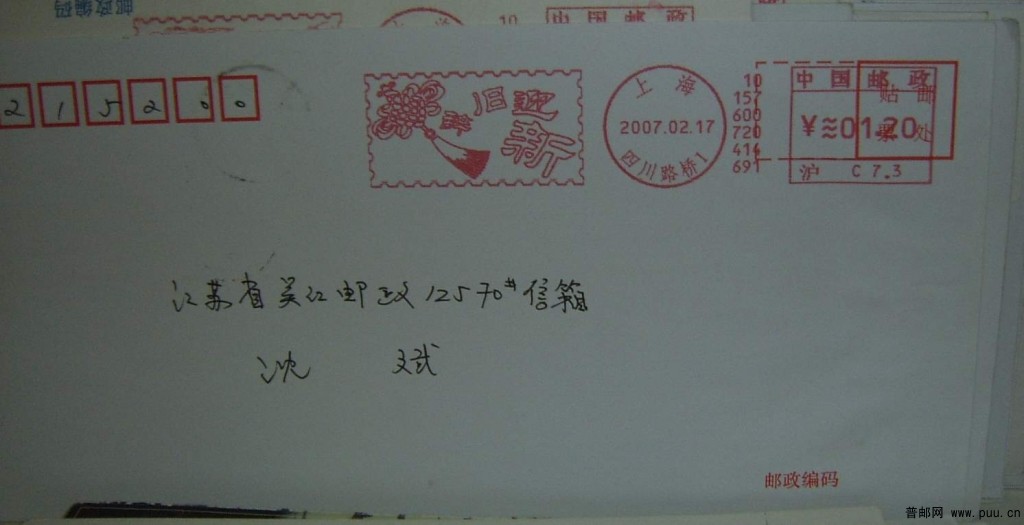 邮政编码
10
中国邮政
215200
辞旧迎新
上海
2007.02.17
四川路桥1
10
157
600
720
414
691
中国邮政
¥≋01.20
沪 C 7.3
贴邮
票处
江苏省吴江邮政12570#信箱
沈 斌
邮政编码
普邮网 www.puu.cn